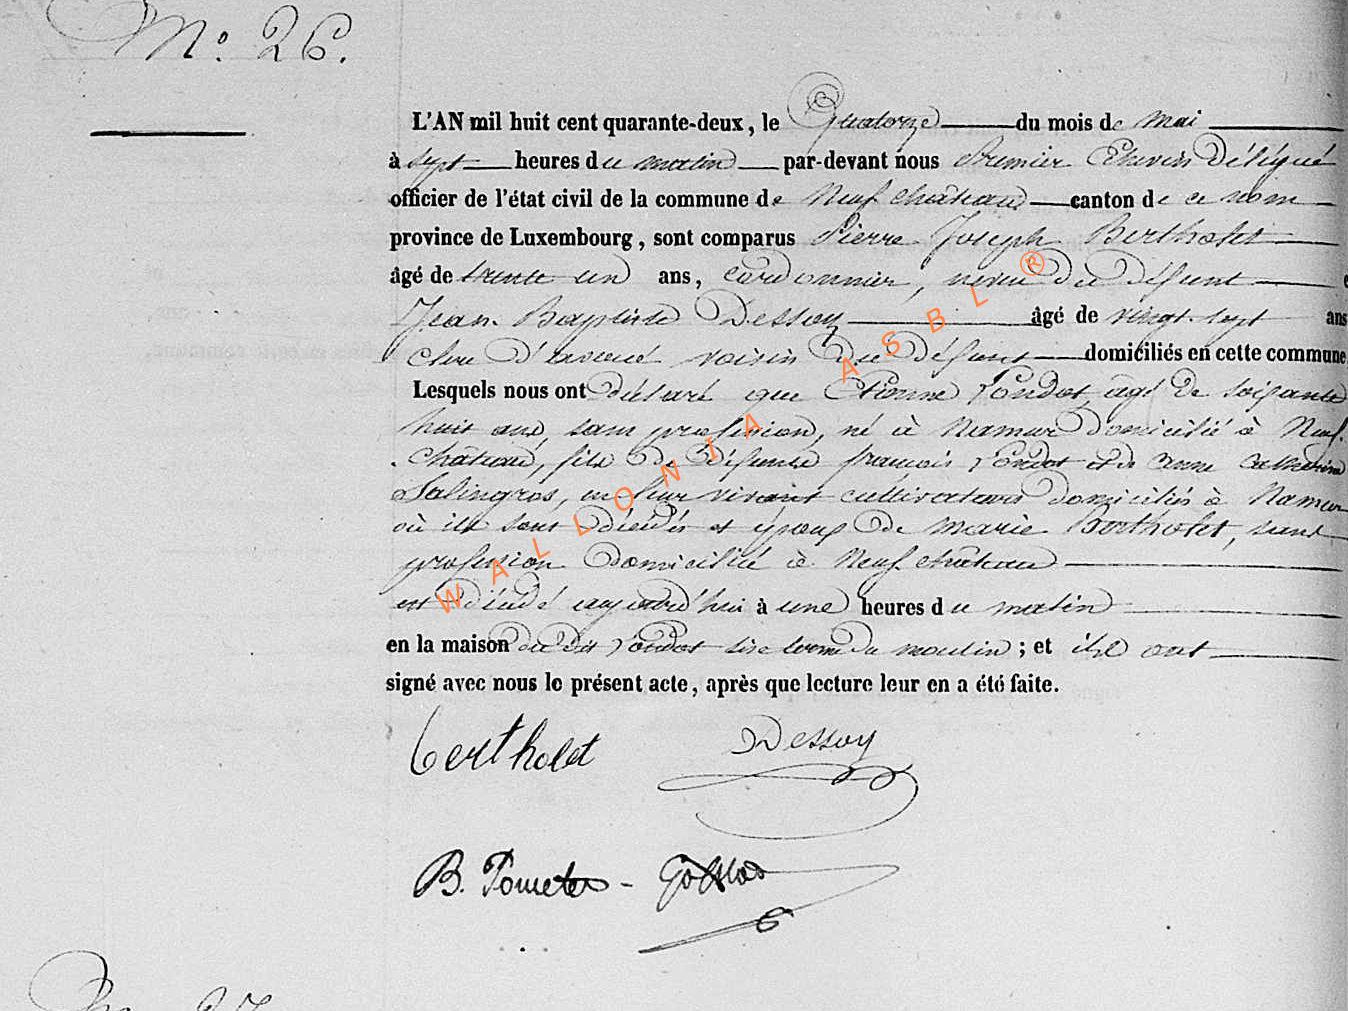 N.º 26.
L'AN mil huit cent quarante-deux, le Quatorze du mois de mai
à sept heures du matin par-devant nous Premier Echevin Délégué
officier de l'état civil de la commune de Neufchâteau canton de ce nom
province de Luxembourg, sont comparus Pierre Joseph Bertholet
âgé de trente un ans, cordonnier, neveu du défunt e
Jean Baptiste Dessoy âgé de vingt sept ans
clerc d'avoué voisin du défunt domiciliés en cette commune
Lesquels nous ont déclaré que Etienne âgé de soixante
huit ans, sans profession, né à Namur domicilié à Neuf-
château, fils de défunts françois et de anne catherine
Salingros, en leur vivant cultivateurs domiciliés à Namur
où ils sont décédés et époux de Marie Bertholet, sans
profession domicilié à Neufchâteau
est décédé aujourd'hui à une heures du matin
en la maison du dit sise du moulin ; et ils ont
signé avec nous le présent acte, après que lecture leur en a été faite.
bertholet Dessoy
B.
WALLONIA ASBL ®